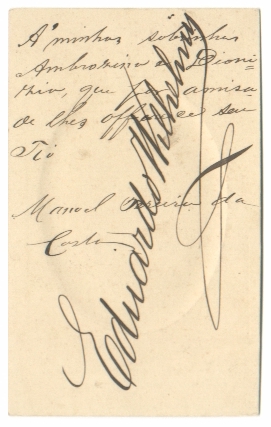 A' minhas sobrinhas
Ambrozina e Dioni-
zia, que por amisa
de lhes offerece seu
Tio
Manoel Pereira da
Costa
Eduardo Wilhelmy